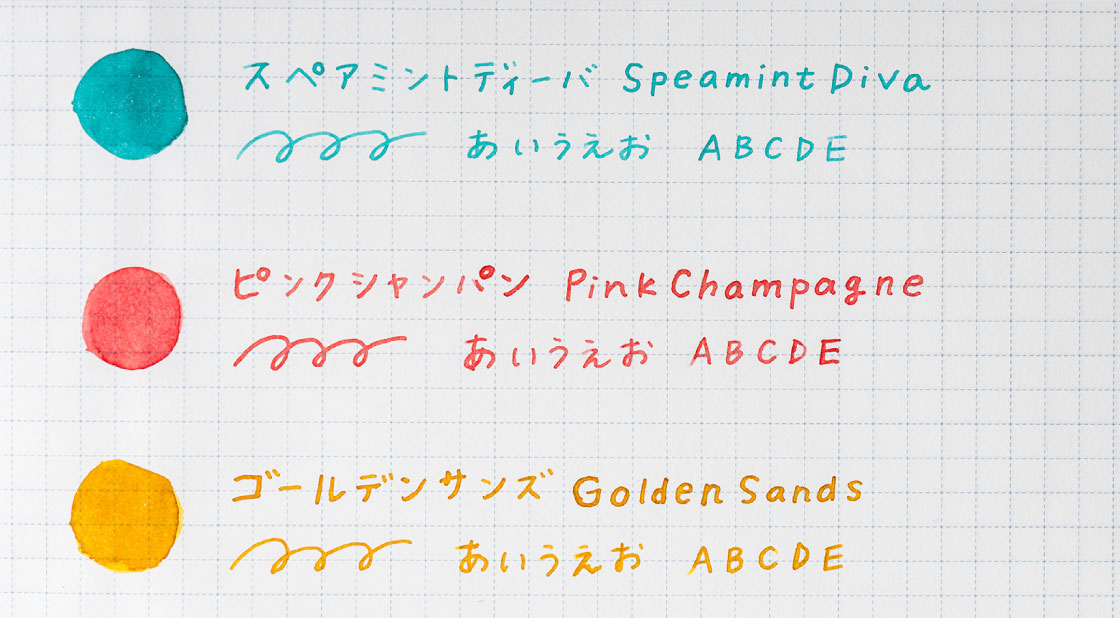 スペアミントディーバ Speamint Diva
あいうえお ABCDE
ピンクシャンパン Pink Champagne
あいうえお ABCDE
ゴールデンサンズ Golden Sands
あいうえお ABCDE